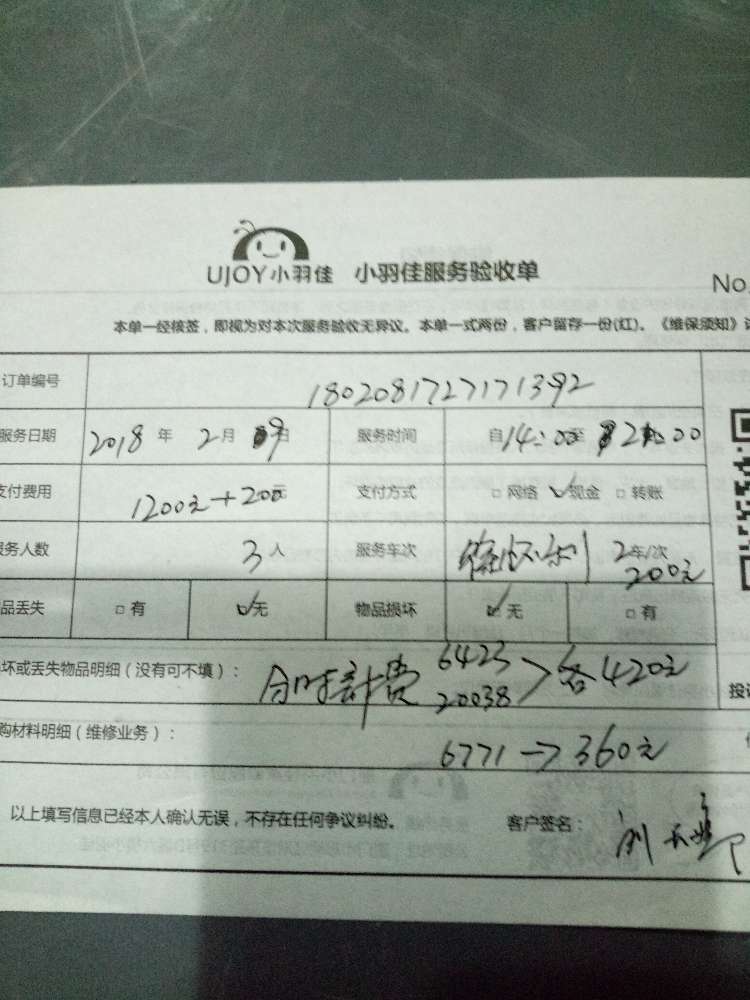 UJOY小羽佳 小羽佳服务验收单
No.
本单一经核签，即视为对本次服务验收无异议。本单一式两份，客户留存一份(红)。《维保须知》
订单编号 1802081727171392
服务日期 2018 年 2 月 9 日 服务时间 自 14:00 至 21:00
支付费用 1200元+200元 支付方式 □ 网络 ☑ 现金 □ 转账
务人数 3 人 服务车次 2 车/次
200元
品丢失 □ 有 ☑ 无 物品损坏 ☑ 无 □ 有
坏或丢失物品明细（没有可不填）： 分时计费 6423 20038 > 各420元
投
购材料明细（维修业务）： 6771 → 360元
以上填写信息已经本人确认无误，不存在任何争议纠纷。 客户签名：